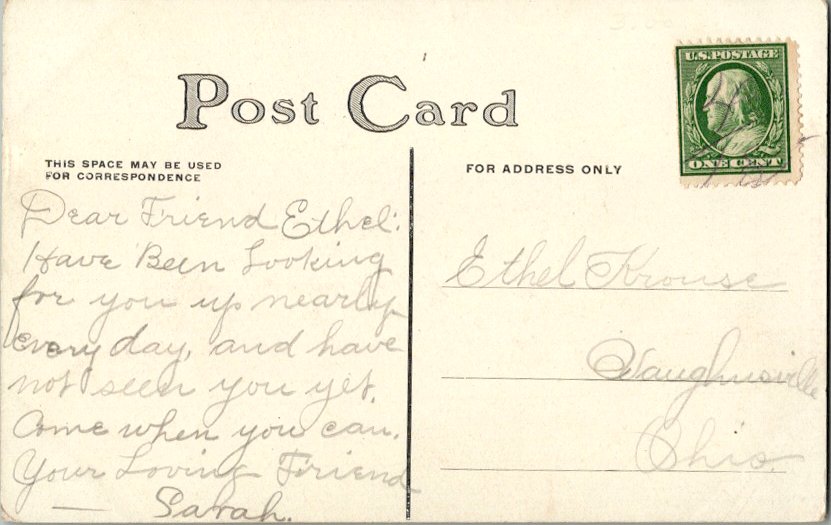 U.S. POSTAGE
ONE CENT
Post Card
THIS SPACE MAY BE USED
FOR CORRESPONDENCE
FOR ADDRESS ONLY
Dear Friend Ethel:
Have Been Looking
for you up nearly
every day, and have
not seen you yet.
Come when you can.
Your Loving Friend
— Sarah.
Ethel Krouse
Vaughnsville
Ohio.